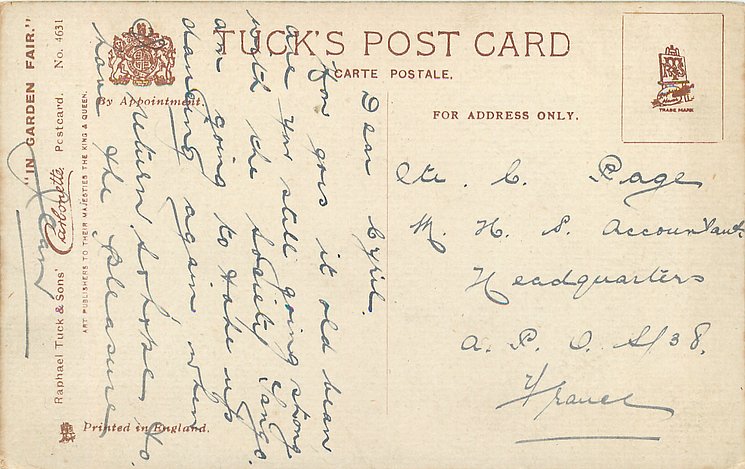 TUCK'S POST CARD
CARTE POSTALE.
By Appointment.
FOR ADDRESS ONLY.
TRADE MARK
Cte. C. Page
M. H. S. Accountant
Headquarters
A. P. O. S/38.
France
Dear Cyril.
How goes it old bean
are you still going strong
with the Society Tango. I
am going to take up
dancing again when
I return, so hope to
have the pleasure,
"IN GARDEN FAIR."
Raphael Tuck & Sons' Carbonette Postcard. No. 4631
ART PUBLISHERS TO THEIR MAJESTIES THE KING & QUEEN.
Printed in England.